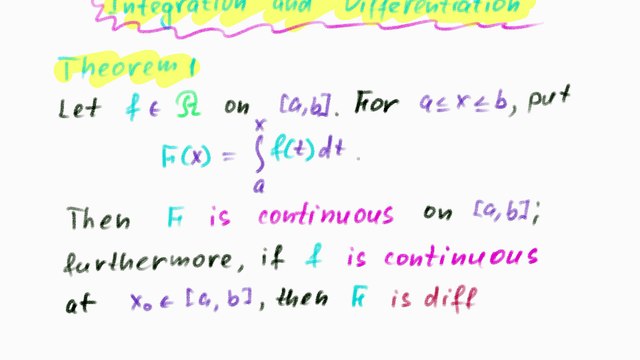 Integration and Differentiation
Theorem 1
Let f ∈ ℛ on [a,b]. For a ≤ x ≤ b, put
F(x) = ∫ₐˣ f(t) dt.
Then F is continuous on [a,b];
furthermore, if f is continuous
at x₀ ∈ [a, b], then F is diff